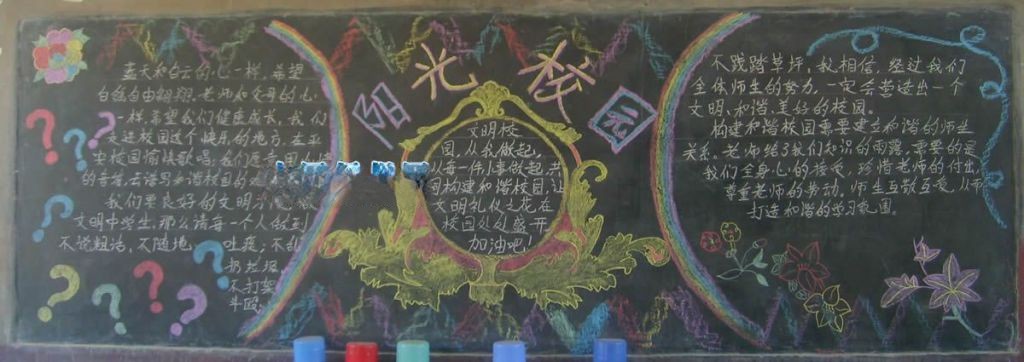 阳光校园
蓝天和白云的心一样,希望
白鸽自由翱翔.老师和父母的心
一样.希望我们健康成长.我们
走进校园这个快乐的地方.在平
安校园愉快歌唱;我们
的音符.去谱写和谐校园的
我们要良好的文明
文明中学生.那么请每一个人做到
不说粗话,不随地吐痰;不乱
扔垃圾.
不打架
斗殴
文明校
园,从我做起,
从每一件小事做起,共
同构建和谐校园,让
文明礼仪之花在
校园处处盛开
加油吧!
不践踏草坪,我相信,经过我们
全体师生的努力,一定会营造出一个
文明、和谐、美好的校园。
构建和谐校园需要建立和谐的师生
关系。老师给予我们知识的雨露,需要的是
我们全身心的接受,珍惜老师的付出,
尊重老师的劳动,师生互敬互爱,从而
打造和谐的学习氛围。